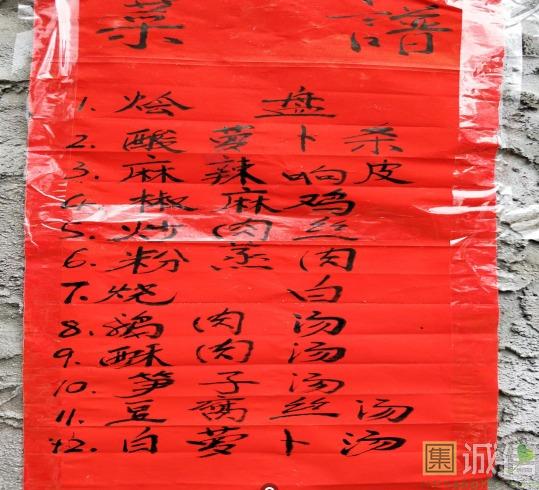 菜 譜
1. 烩 盘
2. 酸萝卜杀
3. 麻辣响皮
4. 椒麻鸡
5. 炒肉丝
6. 粉蒸肉
7. 烧白
8. 鸡肉汤
9. 酥肉汤
10. 笋子汤
11. 豆腐丝汤
12. 白萝卜汤
集 诚信